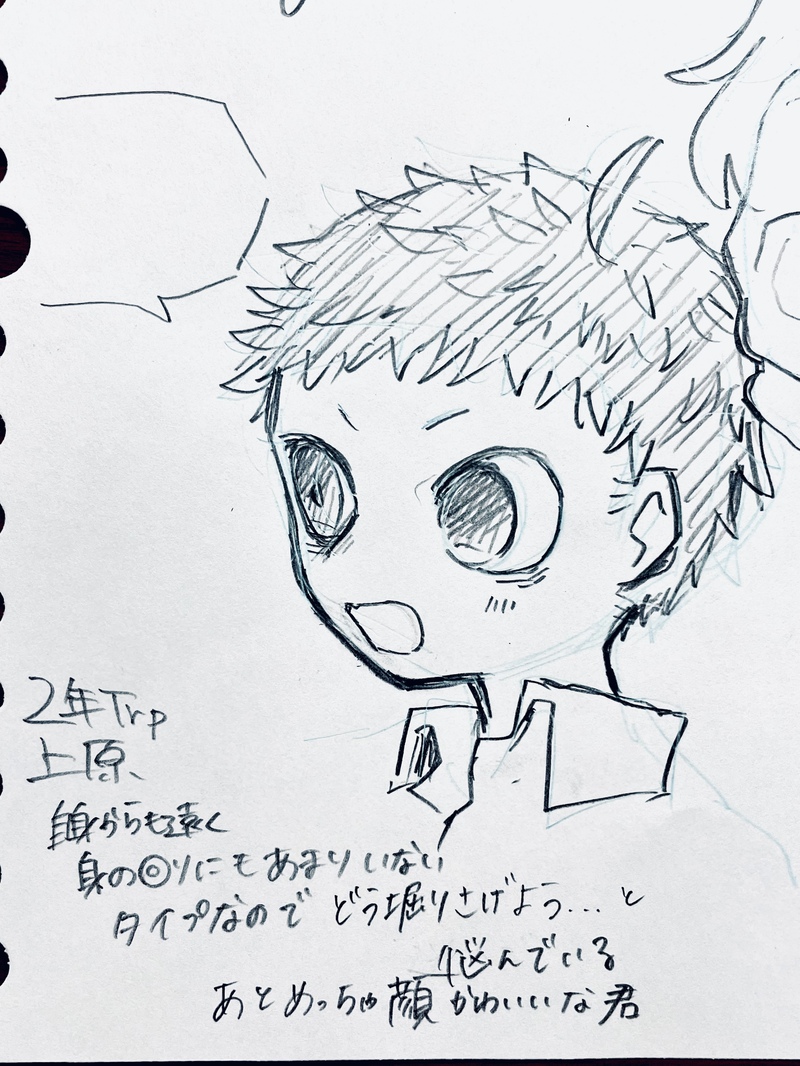 2年Trp
上原、
自身からも遠く
身の◎りにもあまりいない
タイプなのでどう掘りさげよう...と
悩んでいる
あとめっちゃ顔かわいいな君